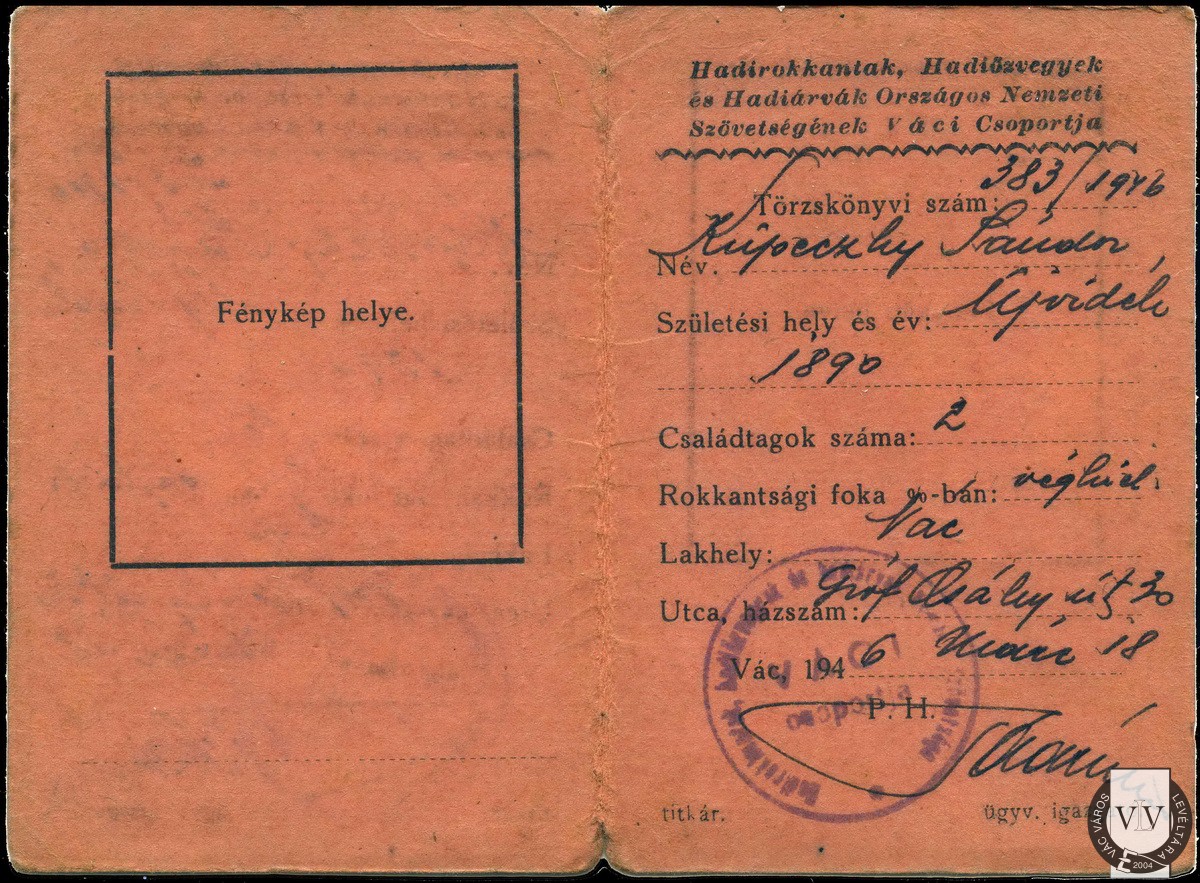 Fénykép helye.
Hadirokkantak, Hadiözvegyek
és Hadiárvák Országos Nemzeti
Szövetségének Váci Csoportja
Törzskönyvi szám: 383/1946
Név. Kúpeczky Sándor
Születési hely és év: Újvidék
1890
Családtagok száma: 2
Rokkantsági foka %-bán:
Lakhely: Vác
Utca, házszám: Gróf Csáky út 30
Vác, 1946 márc 18
P. H.
VÁCI
csoportja
titkár.
ügyv. igaz
VÁC VÁROS LEVÉLTÁRA
VLV
2004